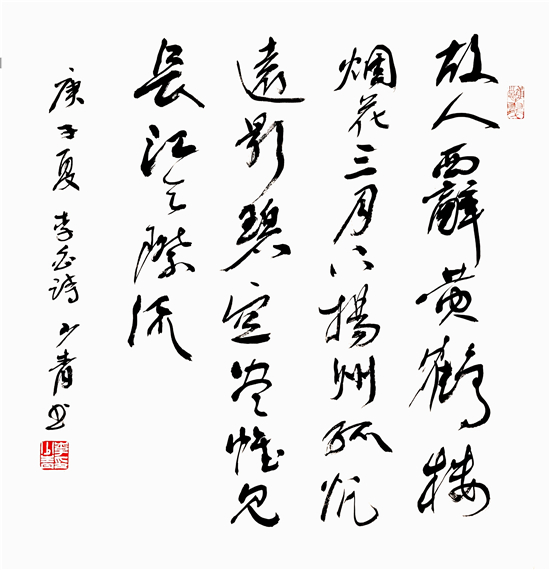 故人西辭黄鶴楼
烟花三月下揚州孤帆
遠影碧空尽惟见
長江天際流
庚子夏 李白诗 少青书